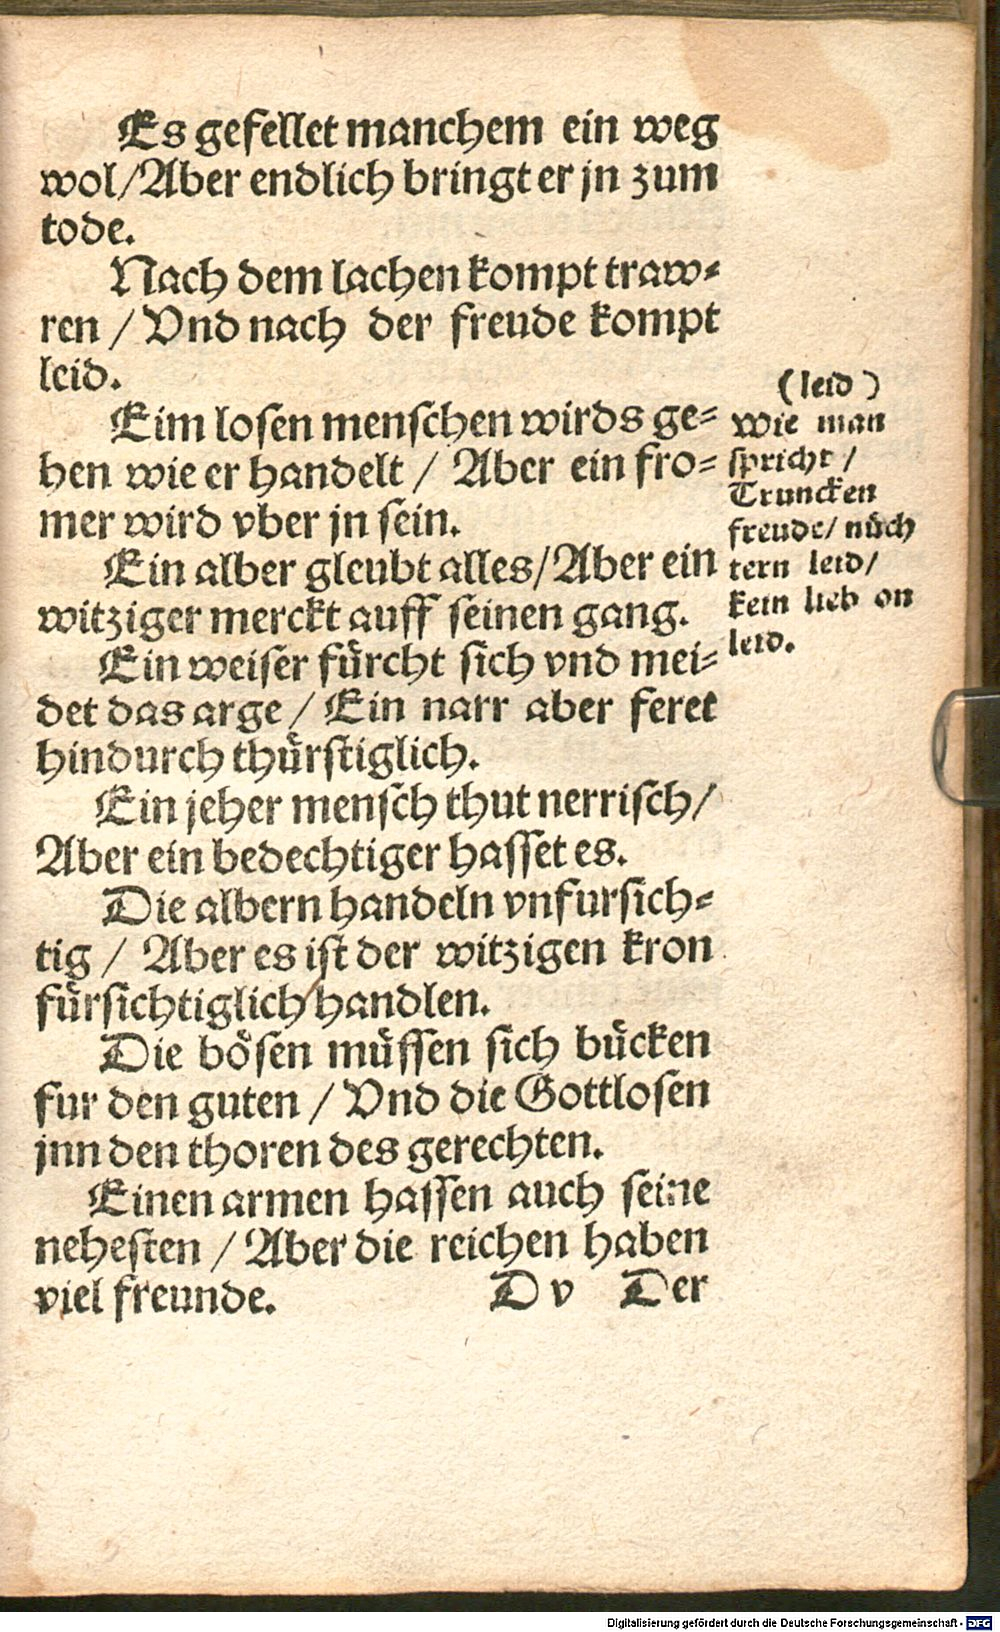 Es gefellet manchem ein weg
wol/Aber endlich bringt er jn zum
tode.
Nach dem lachen kompt traw⸗
ren / Vnd nach der freude kompt
leid.
Eim losen menschen wirds ge⸗
hen wie er handelt / Aber ein fro⸗
mer wird vber jn sein.
Ein alber gleubt alles/Aber ein
witziger merckt auff seinen gang.
Ein weiser fürcht sich vnd mei⸗
det das arge / Ein narr aber feret
hindurch thürstiglich.
Ein jeher mensch thut nerrisch/
Aber ein bedechtiger hasset es.
Die albern handeln vnfursich⸗
tig / Aber es ist der witzigen kron
fürsichtiglich handlen.
Die bösen müssen sich bücken
fur den guten / Vnd die Gottlosen
jnn den thoren des gerechten.
Einen armen hassen auch seine
nehesten / Aber die reichen haben
viel freunde.
D v Der
(leid)
Wie man
spricht /
Truncken
freude/ nüch
tern leid/
kein lieb on
leid.
Digitalisierung gefördert durch die Deutsche Forschungsgemeinschaft - DFG